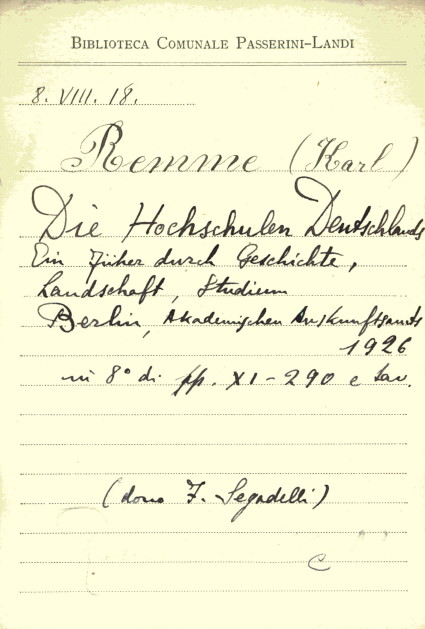 BIBLIOTECA COMUNALE PASSERINI-LANDI
8. VIII. 18.
Remme (Karl)
Die Hochschulen Deutschlands
Ein Füher durch Geschichte,
Landschaft, Studium
Berlin, Akademischen Auskunftsamts
1926
in 8° di pp. XI-290 e tav.
(dono F. Segadelli)
C